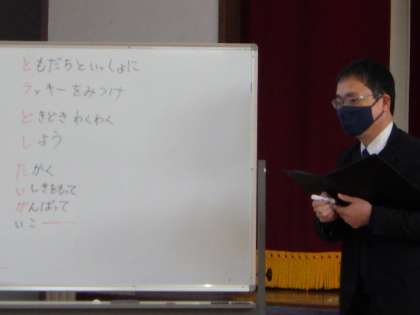 ともだちといっしょに
ラッキーをみつけ
どきどきわくわく
しよう
たかく
いしきをもって
がんばって
いこー